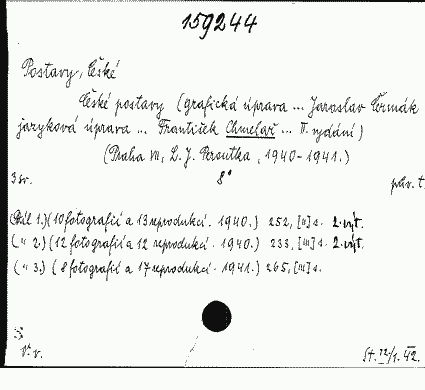 159244
Postavy, České
České postavy (grafická úprava ... Jaroslav Čermák
jazyková úprava ... František Chmelař ... II. vydání)
(Praha VII, L. J. Peroutka, 1940-1941.)
3 sv. 8° pův. t.
(Díl 1.) (10 fotografií a 13 reprodukcí. 1940.) 252, [II] s. 2. výt.
( „ 2.) (12 fotografií a 12 reprodukcí. 1940.) 233, [III] s. 2. výt.
( „ 3.) ( 8 fotografií a 17 reprodukcí. 1941.) 265, [III] s.
V. v. St. 12/1. 42.